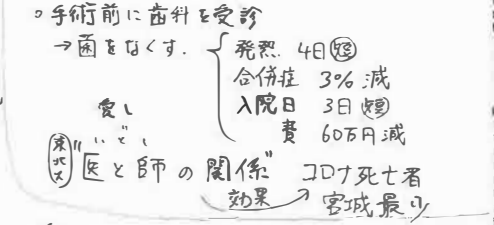 。手術前に歯科を受診
→菌をなくす. 発熱 4日短
合併症 3%減
入院日 3日短
費 60万円減
愛し
いとし
東北大 "医と師の関係" コロナ死亡者
効果 宮城最少